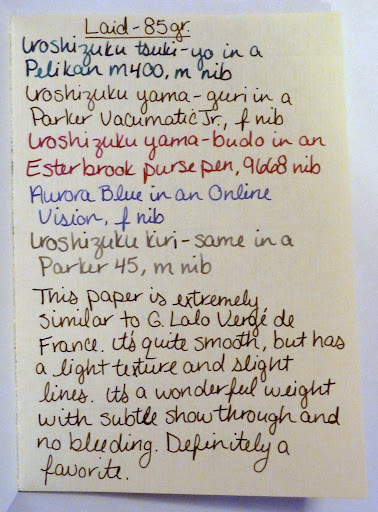 Laid - 85gr.
Iroshizuku tsuki-yo in a
Pelikan m400, m nib
Iroshizuku yama-guri in a
Parker Vacumatic Jr., f nib
Iroshizuku yama-budo in an
Esterbrook purse pen, 9668 nib
Aurora Blue in an Online
Vision, f nib
Iroshizuku kiri-same in a
Parker 45, m nib
This paper is extremely
similar to G. Lalo Vergé de
France. It's quite smooth, but has
a light texture and slight
lines. It's a wonderful weight
with subtle show through and
no bleeding. Definitely a
favorite.